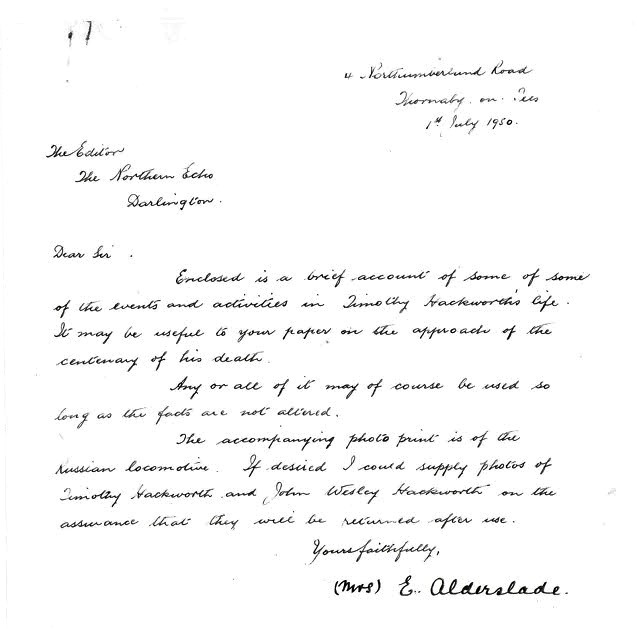 4 Northumberland Road
Thornaby. on. Tees
1st July 1950.
The Editor
The Northern Echo
Darlington.
Dear Sir.
Enclosed is a brief account of some of some
of the events and activities in Timothy Hackworth's life.
It may be useful to your paper on the approach of the
centenary of his death.
Any or all of it may of course be used so
long as the facts are not altered.
The accompanying photo print is of the
Russian locomotive. If desired I could supply photos of
Timothy Hackworth and John Wesley Hackworth on the
assurance that they will be returned after use.
Yours faithfully,
(Mrs) E. Alderslade.